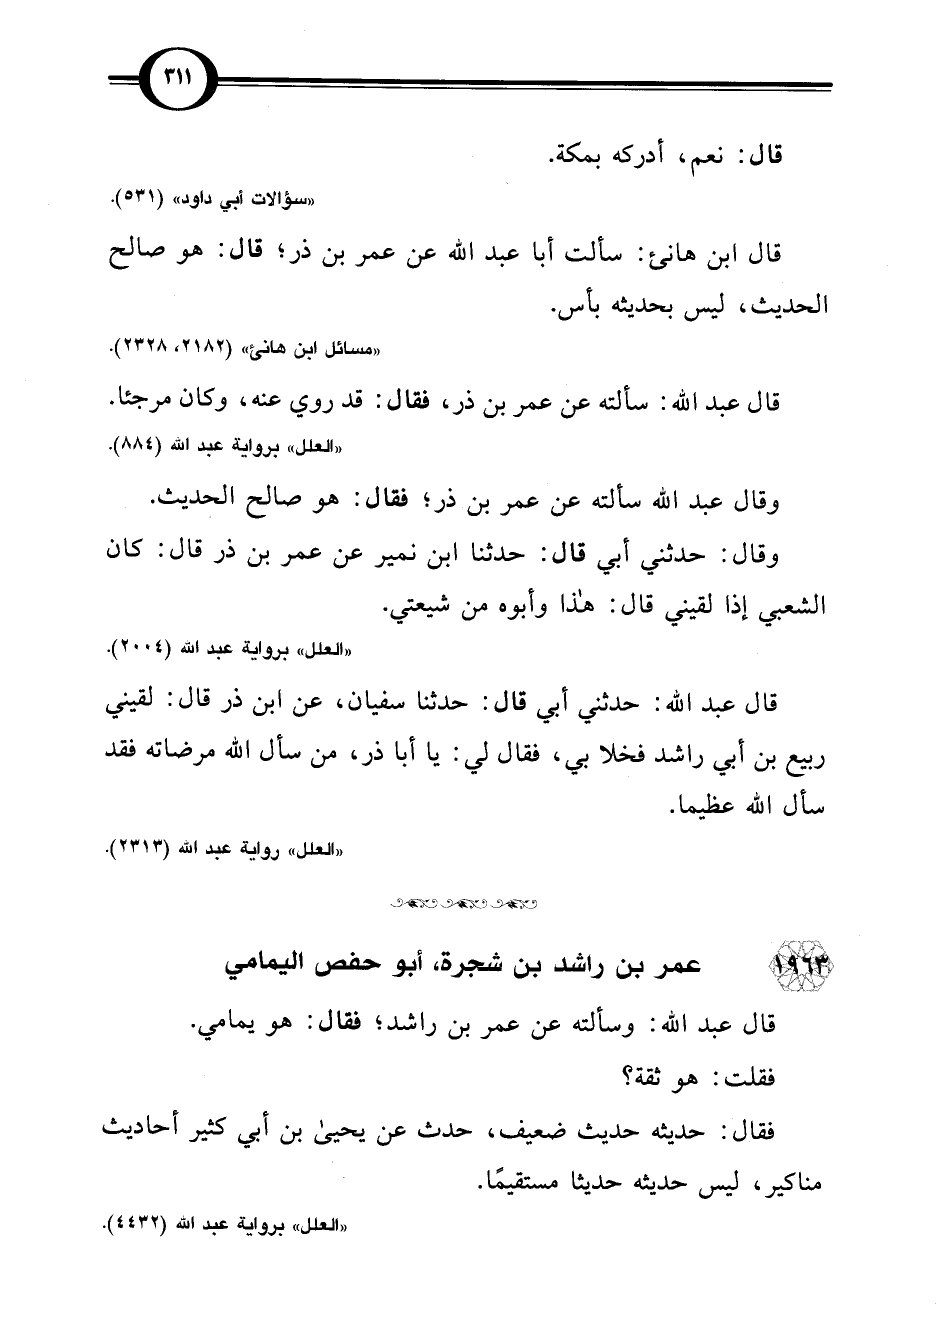 ٣١١
قال: نعم، أدركه بمكة.
«سؤالات أبي داود» (٥٣١).
قال ابن هانئ: سألت أبا عبد الله عن عمر بن ذر؛ قال: هو صالح
الحديث، ليس بحديثه بأس.
«مسائل ابن هانئ» (٢١٨٢، ٢٣٢٨).
قال عبد الله: سألته عن عمر بن ذر، فقال: قد روي عنه، وكان مرجئا.
«العلل» برواية عبد الله (٨٨٤).
وقال عبد الله سألته عن عمر بن ذر؛ فقال: هو صالح الحديث.
وقال: حدثني أبي قال: حدثنا ابن نمير عن عمر بن ذر قال: كان
الشعبي إذا لقيني قال: هذا وأبوه من شيعتي.
«العلل» برواية عبد الله (٢٠٠٤).
قال عبد الله: حدثني أبي قال: حدثنا سفيان، عن ابن ذر قال: لقيني
ربيع بن أبي راشد فخلا بي، فقال لي: يا أبا ذر، من سأل الله مرضاته فقد
سأل الله عظيما.
«العلل» رواية عبد الله (٢٣١٣).
١٩٦٣ عمر بن راشد بن شجرة، أبو حفص اليمامي
قال عبد الله: وسألته عن عمر بن راشد؛ فقال: هو يمامي.
فقلت: هو ثقة؟
فقال: حديثه حديث ضعيف، حدث عن يحيىٰ بن أبي كثير أحاديث
مناكير، ليس حديثه حديثا مستقيمًا.
«العلل» برواية عبد الله (٤٤٣٢).